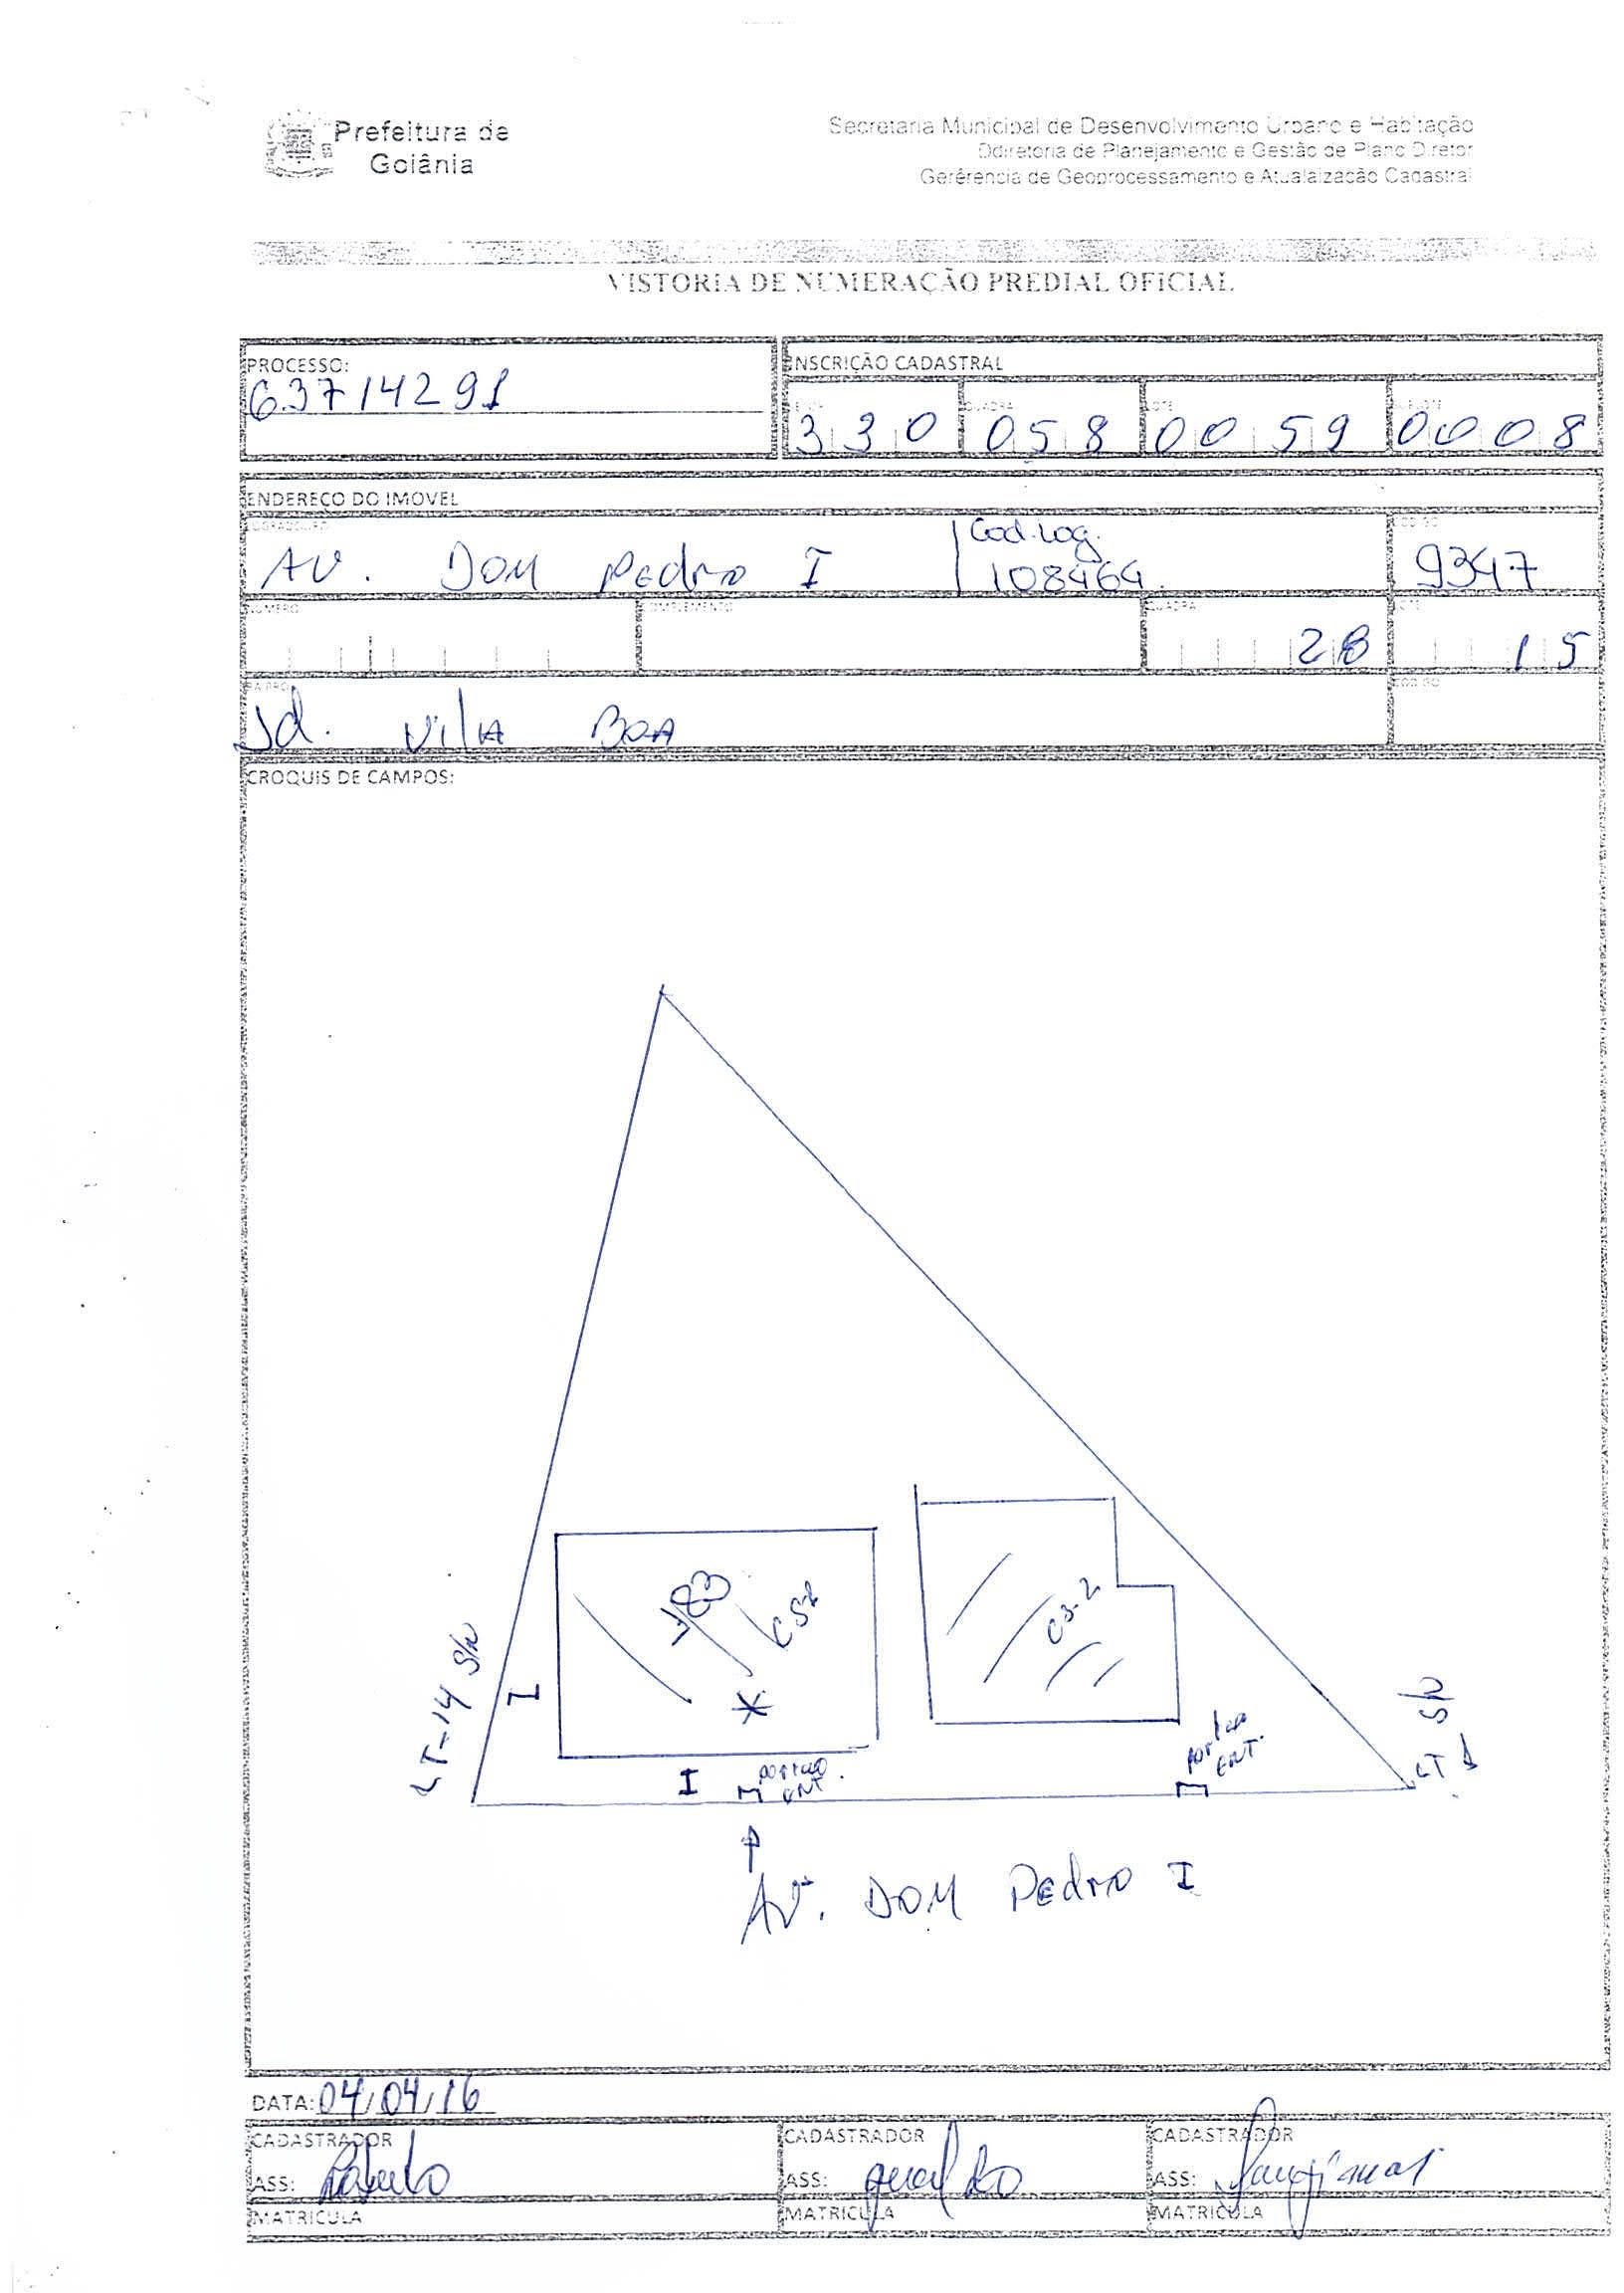 Prefeitura de
Goiânia
Secretaria Municipal de Desenvolvimento Urbano e Habitação
Ddiretoria de Planejamento e Gestão de Plano Diretor
Gerêrencia de Geoprocessamento e Atualaização Cadastral
VISTORIA DE NUMERAÇÃO PREDIAL OFICIAL
PROCESSO:
63714291
INSCRIÇÃO CADASTRAL
QUADRA LOTE
330 058 0059 0008
ENDEREÇO DO IMOVEL
LOGRADOURO CODIGO
AV. DOM PEdro I Cod.Log. 108464 9347
NUMERO COMPLEMENTO QUADRA LOTE
28 15
BAIRRO CODIGO
Jd. VilA BOA
CROQUIS DE CAMPOS:
LT-14 S/N
I
483
CS1
CS-2
I
portao ENT.
portao ENT.
S/N
LT 1
AV. DOM PEdro I
DATA: 04/04/16
CADASTRADOR CADASTRADOR CADASTRADOR
ASS: ASS: ASS:
MATRICULA MATRICULA MATRICULA